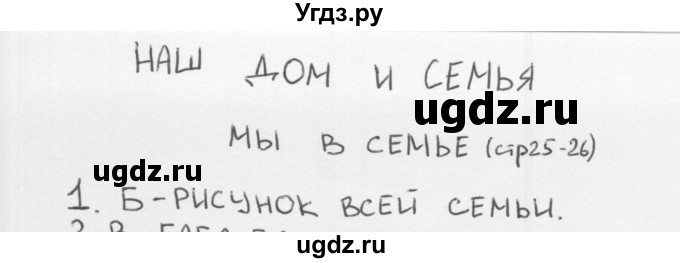 Угдз.ру
НАШ ДОМ И СЕМЬЯ
ugdz.ru
МЫ В СЕМЬЕ (стр25-26)
ugdz.ru
1. Б-РИСУНОК ВСЕЙ СЕМЬИ.
ugdz.ru